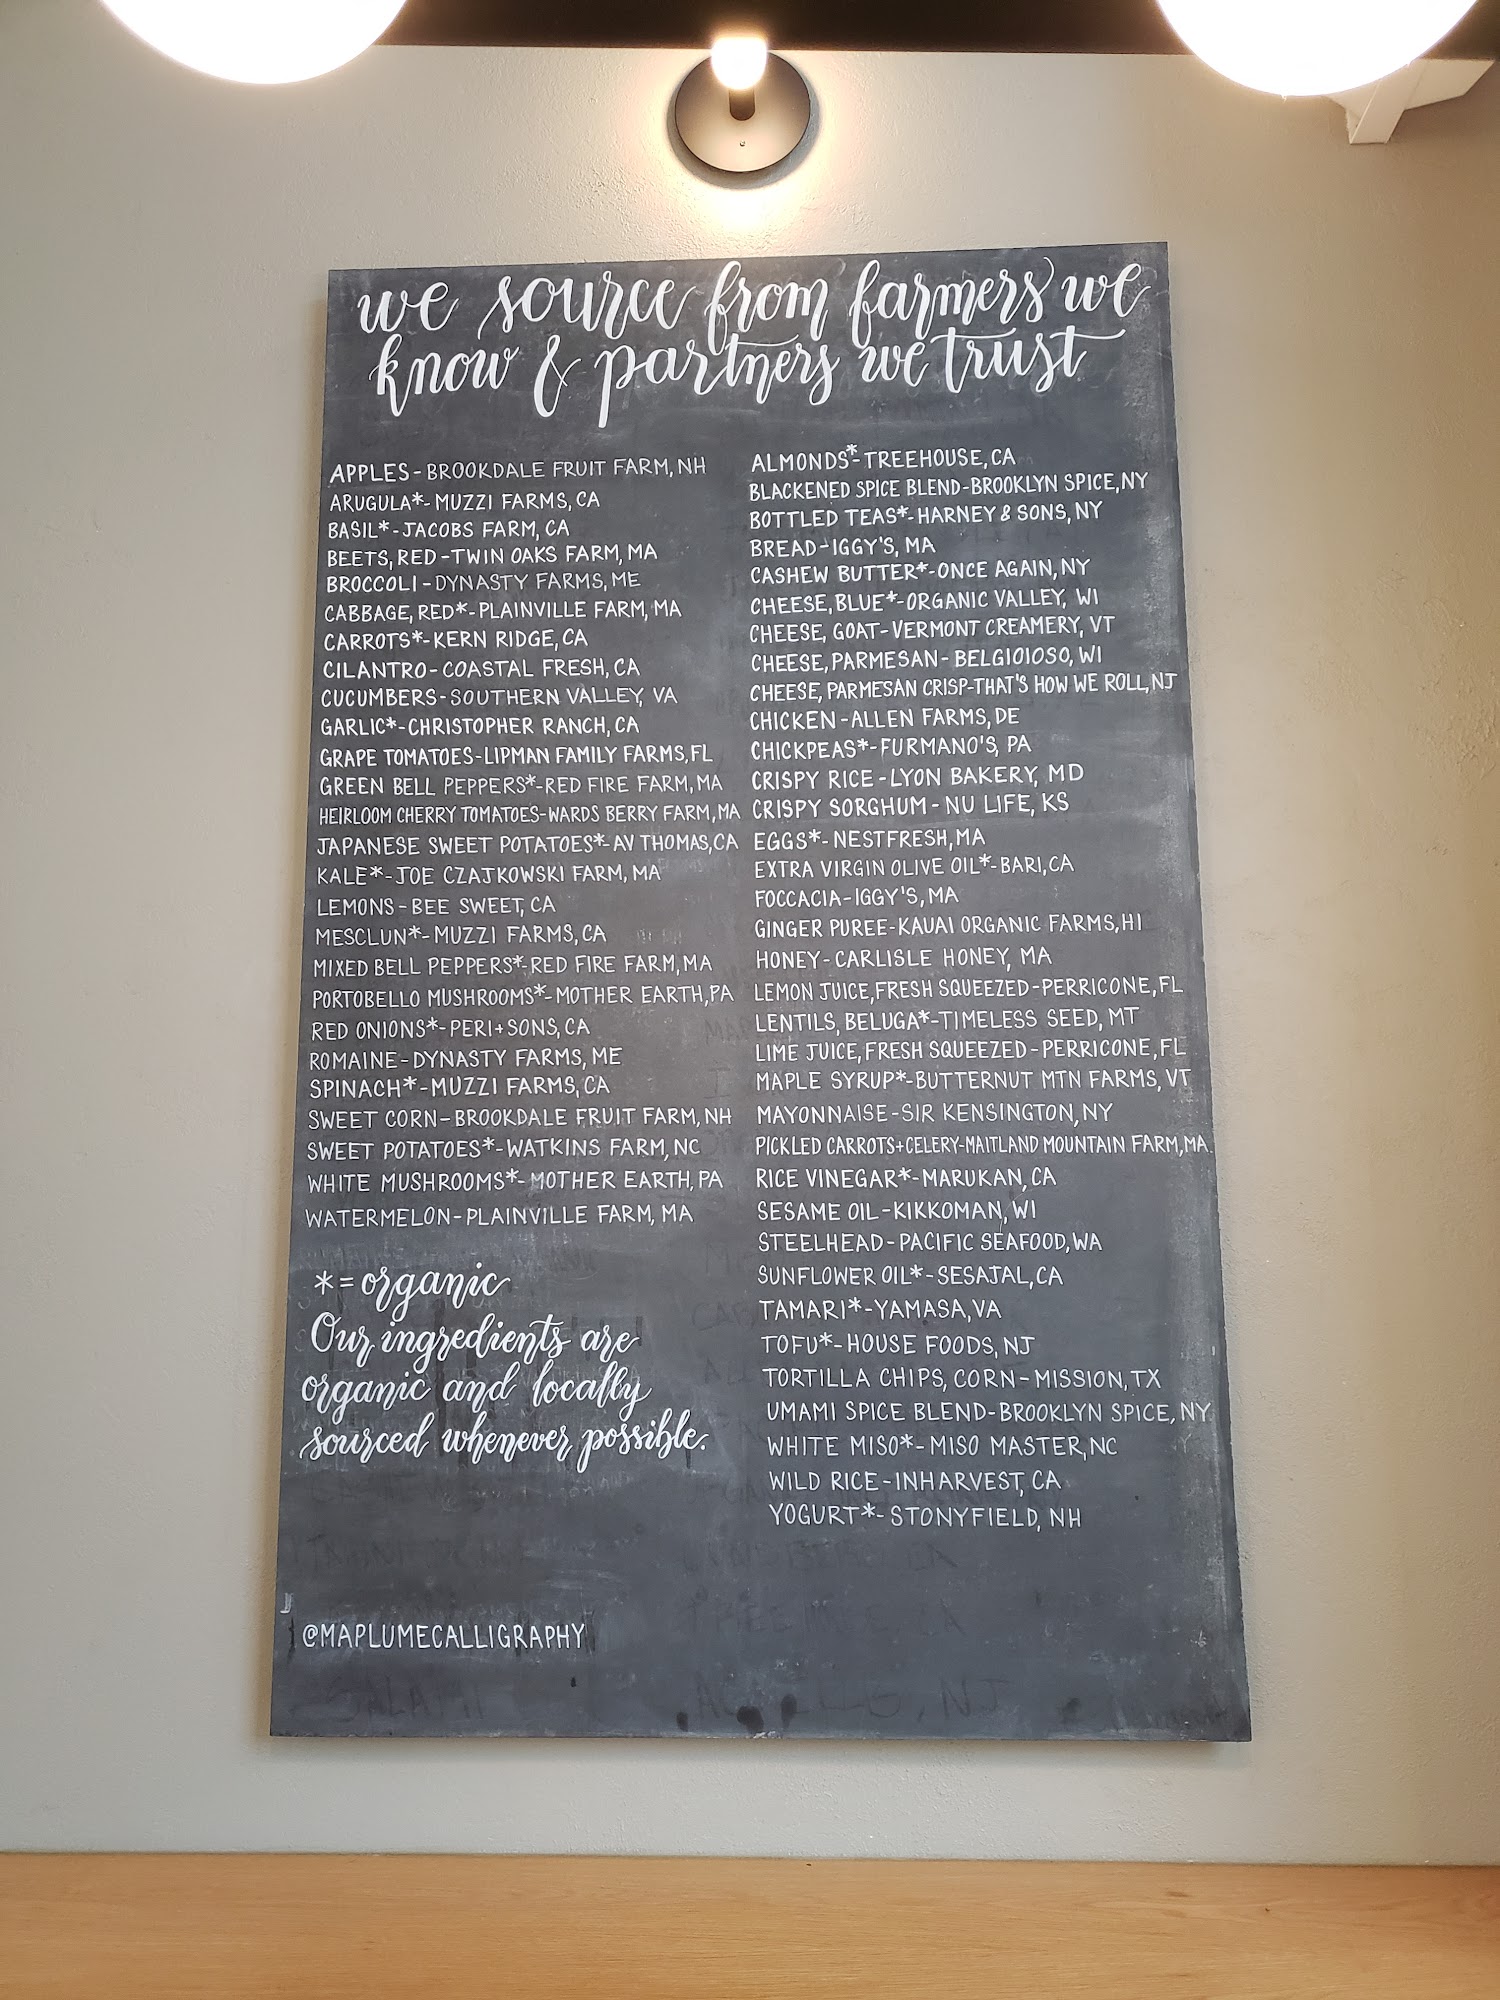 we source from farmers we
know & partners we trust
APPLES-BROOKDALE FRUIT FARM, NH
ARUGULA*-MUZZI FARMS, CA
BASIL*-JACOBS FARM, CA
BEETS, RED-TWIN OAKS FARM, MA
BROCCOLI-DYNASTY FARMS, ME
CABBAGE, RED*-PLAINVILLE FARM, MA
CARROTS*-KERN RIDGE, CA
CILANTRO-COASTAL FRESH, CA
CUCUMBERS-SOUTHERN VALLEY, VA
GARLIC*-CHRISTOPHER RANCH, CA
GRAPE TOMATOES-LIPMAN FAMILY FARMS, FL
GREEN BELL PEPPERS*-RED FIRE FARM, MA
HEIRLOOM CHERRY TOMATOES-WARDS BERRY FARM, MA
JAPANESE SWEET POTATOES*-AV THOMAS, CA
KALE*-JOE CZAJKOWSKI FARM, MA
LEMONS-BEE SWEET, CA
MESCLUN*-MUZZI FARMS, CA
MIXED BELL PEPPERS*-RED FIRE FARM, MA
PORTOBELLO MUSHROOMS*-MOTHER EARTH, PA
RED ONIONS*-PERI+SONS, CA
ROMAINE-DYNASTY FARMS, ME
SPINACH*-MUZZI FARMS, CA
SWEET CORN-BROOKDALE FRUIT FARM, NH
SWEET POTATOES*-WATKINS FARM, NC
WHITE MUSHROOMS*-MOTHER EARTH, PA
WATERMELON-PLAINVILLE FARM, MA
*=organic
Our ingredients are
organic and locally
sourced whenever possible.
@MAPLUMECALLIGRAPHY
ALMONDS*-TREEHOUSE, CA
BLACKENED SPICE BLEND-BROOKLYN SPICE, NY
BOTTLED TEAS*-HARNEY & SONS, NY
BREAD-IGGY'S, MA
CASHEW BUTTER*-ONCE AGAIN, NY
CHEESE, BLUE*-ORGANIC VALLEY, WI
CHEESE, GOAT-VERMONT CREAMERY, VT
CHEESE, PARMESAN-BELGIOIOSO, WI
CHEESE, PARMESAN CRISP-THAT'S HOW WE ROLL, NJ
CHICKEN-ALLEN FARMS, DE
CHICKPEAS*-FURMANO'S, PA
CRISPY RICE-LYON BAKERY, MD
CRISPY SORGHUM-NU LIFE, KS
EGGS*-NESTFRESH, MA
EXTRA VIRGIN OLIVE OIL*-BARI, CA
FOCCACIA-IGGY'S, MA
GINGER PUREE-KAUAI ORGANIC FARMS, HI
HONEY-CARLISLE HONEY, MA
LEMON JUICE, FRESH SQUEEZED-PERRICONE, FL
LENTILS, BELUGA*-TIMELESS SEED, MT
LIME JUICE, FRESH SQUEEZED-PERRICONE, FL
MAPLE SYRUP*-BUTTERNUT MTN FARMS, VT
MAYONNAISE-SIR KENSINGTON, NY
PICKLED CARROTS+CELERY-MAITLAND MOUNTAIN FARM, MA
RICE VINEGAR*-MARUKAN, CA
SESAME OIL-KIKKOMAN, WI
STEELHEAD-PACIFIC SEAFOOD, WA
SUNFLOWER OIL*-SESAJAL, CA
TAMARI*-YAMASA, VA
TOFU*-HOUSE FOODS, NJ
TORTILLA CHIPS, CORN-MISSION, TX
UMAMI SPICE BLEND-BROOKLYN SPICE, NY
WHITE MISO*-MISO MASTER, NC
WILD RICE-INHARVEST, CA
YOGURT*-STONYFIELD, NH